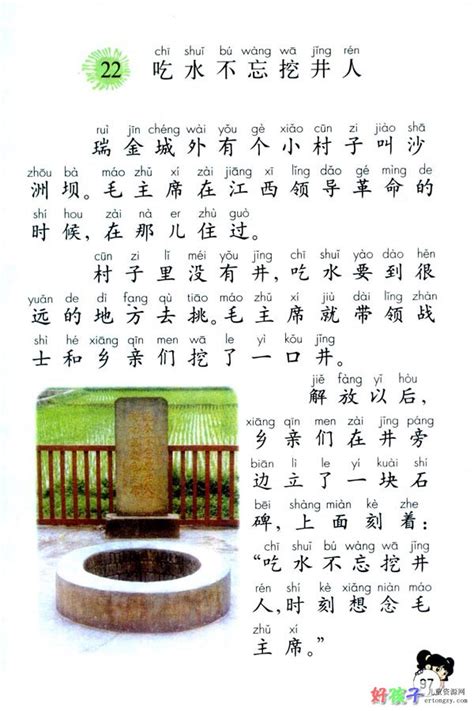 chī shuǐ bú wàng wā jǐng rén
22 吃水不忘挖井人
ruì jīn chéng wài yǒu gè xiǎo cūn zi jiào shā
瑞金城外有个小村子叫沙
zhōu bà máo zhǔ xí zài jiāng xī lǐng dǎo gé mìng de
洲坝。毛主席在江西领导革命的
shí hou zài nà er zhù guò
时候，在那儿住过。
cūn zi lǐ méi yǒu jǐng chī shuǐ yào dào hěn
村子里没有井，吃水要到很
yuǎn de dì fang qù tiāo máo zhǔ xí jiù dài lǐng zhàn
远的地方去挑。毛主席就带领战
shì hé xiāng qīn men wā le yì kǒu jǐng
士和乡亲们挖了一口井。
jiě fàng yǐ hòu
解放以后，
xiāng qīn men zài jǐng páng
乡亲们在井旁
biān lì le yí kuài shí
边立了一块石
bēi shàng miàn kè zhe
碑，上面刻着：
chī shuǐ bú wàng wā jǐng
“吃水不忘挖井
rén shí kè xiǎng niàn máo
人，时刻想念毛
zhǔ xí
主席。”
97
好孩子 儿童资源网
ertongzy.com